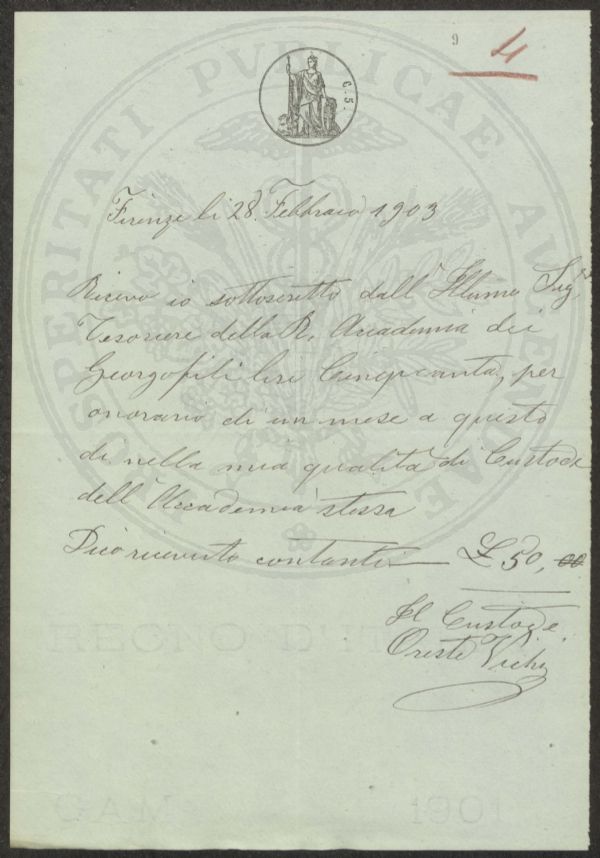 9 4
C. 5.
PROSPERITATI PVBLICAE AVGENDAE
Firenze li 28. Febbraio 1903
Ricevo io sottoscritto dall' Illmo Sigr
Tesoriere della R. Accademia dei
Georgofili lire Cinquanta, per
onorario di un mese a questo
dì nella mia qualità di Custode
dell' Accademia stessa
Dico ricevuto contanti £ 50,00
Il Custode
Oreste Vichi
REGNO D'IT
CAM 1901